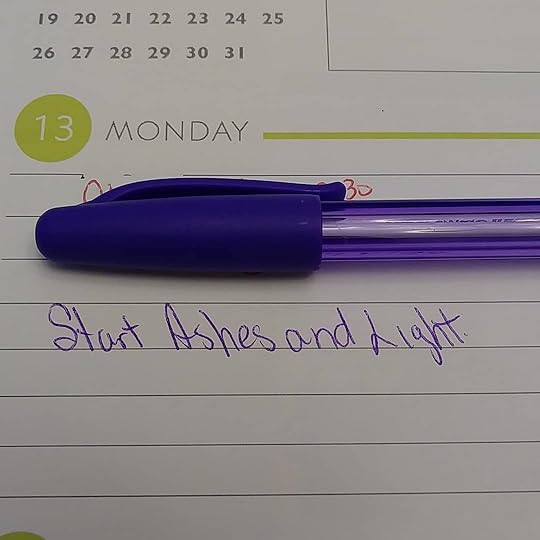 19 20 21 22 23 24 25
26 27 28 29 30 31
13 MONDAY
30
Start Ashes and Light.